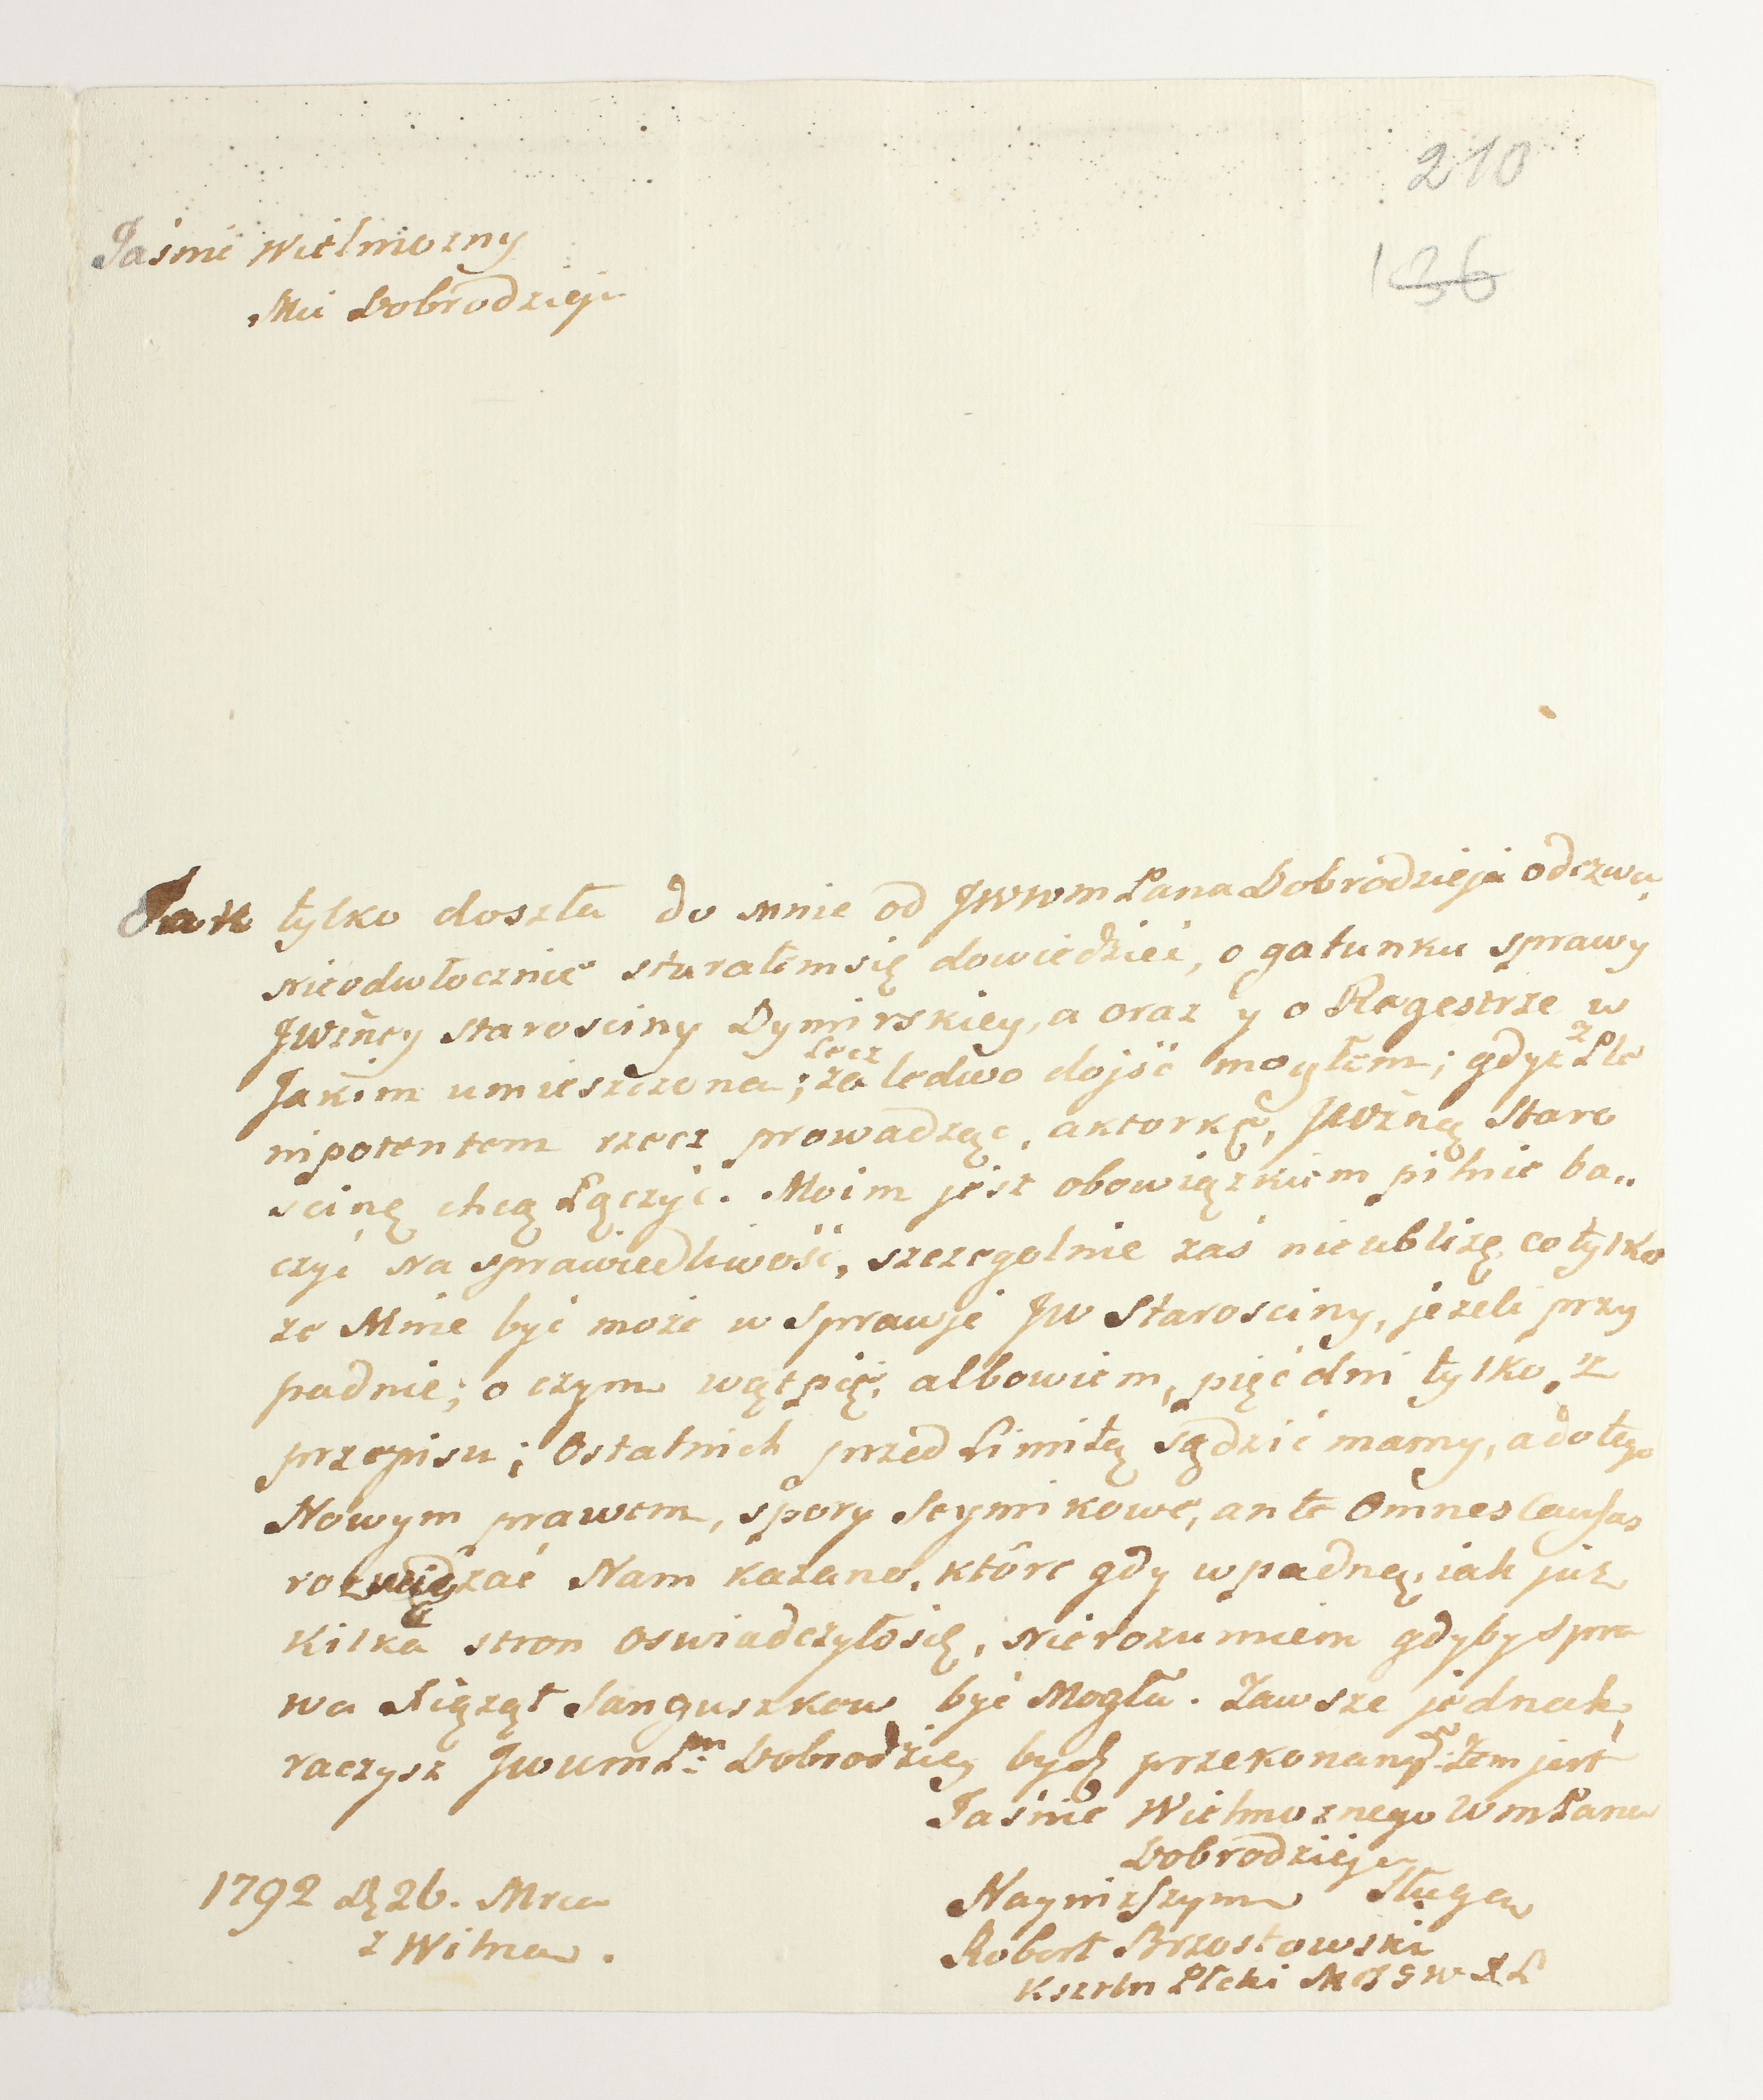 210
136
Jaśnie Wielmozny
Mci Dobrodzieju
Jak tylko doszła do mnie od JWWm Pana Dobrodzieja odezwa,
nieodwłocznie starałem się dowiedzieć, o gatunku sprawy
JWżney Starosciny Dymirskiey, a oraz y o Regestrze w
Jakim umieszczona; lecz zaledwo dojść mogłem; gdyż z Ple
nipotentem rzecz prowadząc, aktorkę, JWżną Staro
scinę chcą Łączyć. Moim jest obowiązkiem pilnie ba„
czyć na sprawiedliwość, szczegolnie zaś nieubliżę, co tylko
ze Mnie być może w sprawje JW Starosciny, jezeli przy
padnie; o czym wątpię, albowiem, pięć dni tylko, z
przepisu; Ostatnich przed Limitą sądzić mamy, a do tego
Nowym prawem, spory Seymikowe, ante Omnes Causas
kazano, które gdy wpadną, iak już
kilka stron oswiadczyło się, nierozumiem gdyby spra
wa Xiążąt Sanguszkow być Mogła. Zawsze jednak,
raczysz JWWmPn Dobrodziey bydź przekonany: żem jest
Jaśnie Wielmoznego WmPana
Dobrodzieja
Nayniższym Sługa
Robert Brzostowski
Ksztln Płcki
1792 D. 26. Mca
z Wilna.